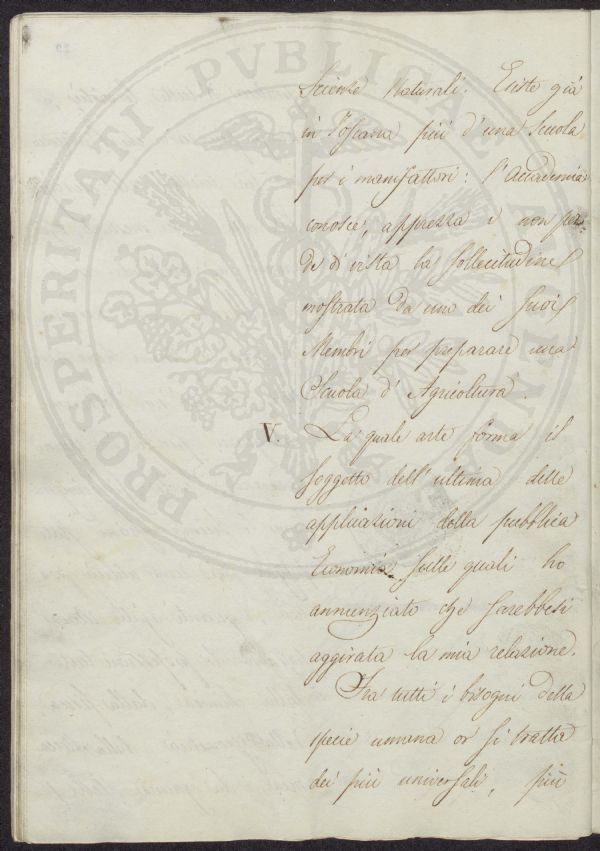 Scienze Naturali. Esiste già
in Toscana più d'una Scuola
per i manifattori: l'Accademia
conosce, apprezza e non per=
de di vista la sollecitudine
mostrata da uno dei suoi
Membri per preparare una
Scuola d'Agricoltura.
V. La quale arte forma il
soggetto dell'ultima delle
applicazioni della pubblica
Economia sulle quali ho
annunziato che sarebbesi
aggirata la mia relazione.
Fra tutti i bisogni della
specie umana or si tratta
dei più universali, più
PROSPERITATI PVBLICAE AVGENDAE